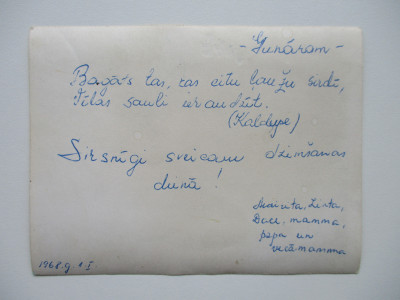 - Gunāram -
Bagāts tas, kas citu ļaužu sirdī,
Pilas sauli ir audzēt.
(Kaldupe)
Sirsnīgi sveicam dzimšanas
dienā!
Aivita, Zinta,
Dace, mamma,
papa un
vecāmamma
1968.g. 1.I